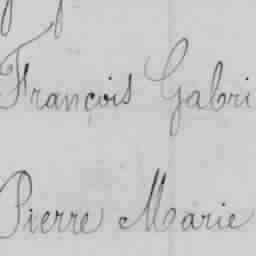 François Gabri
Pierre Marie